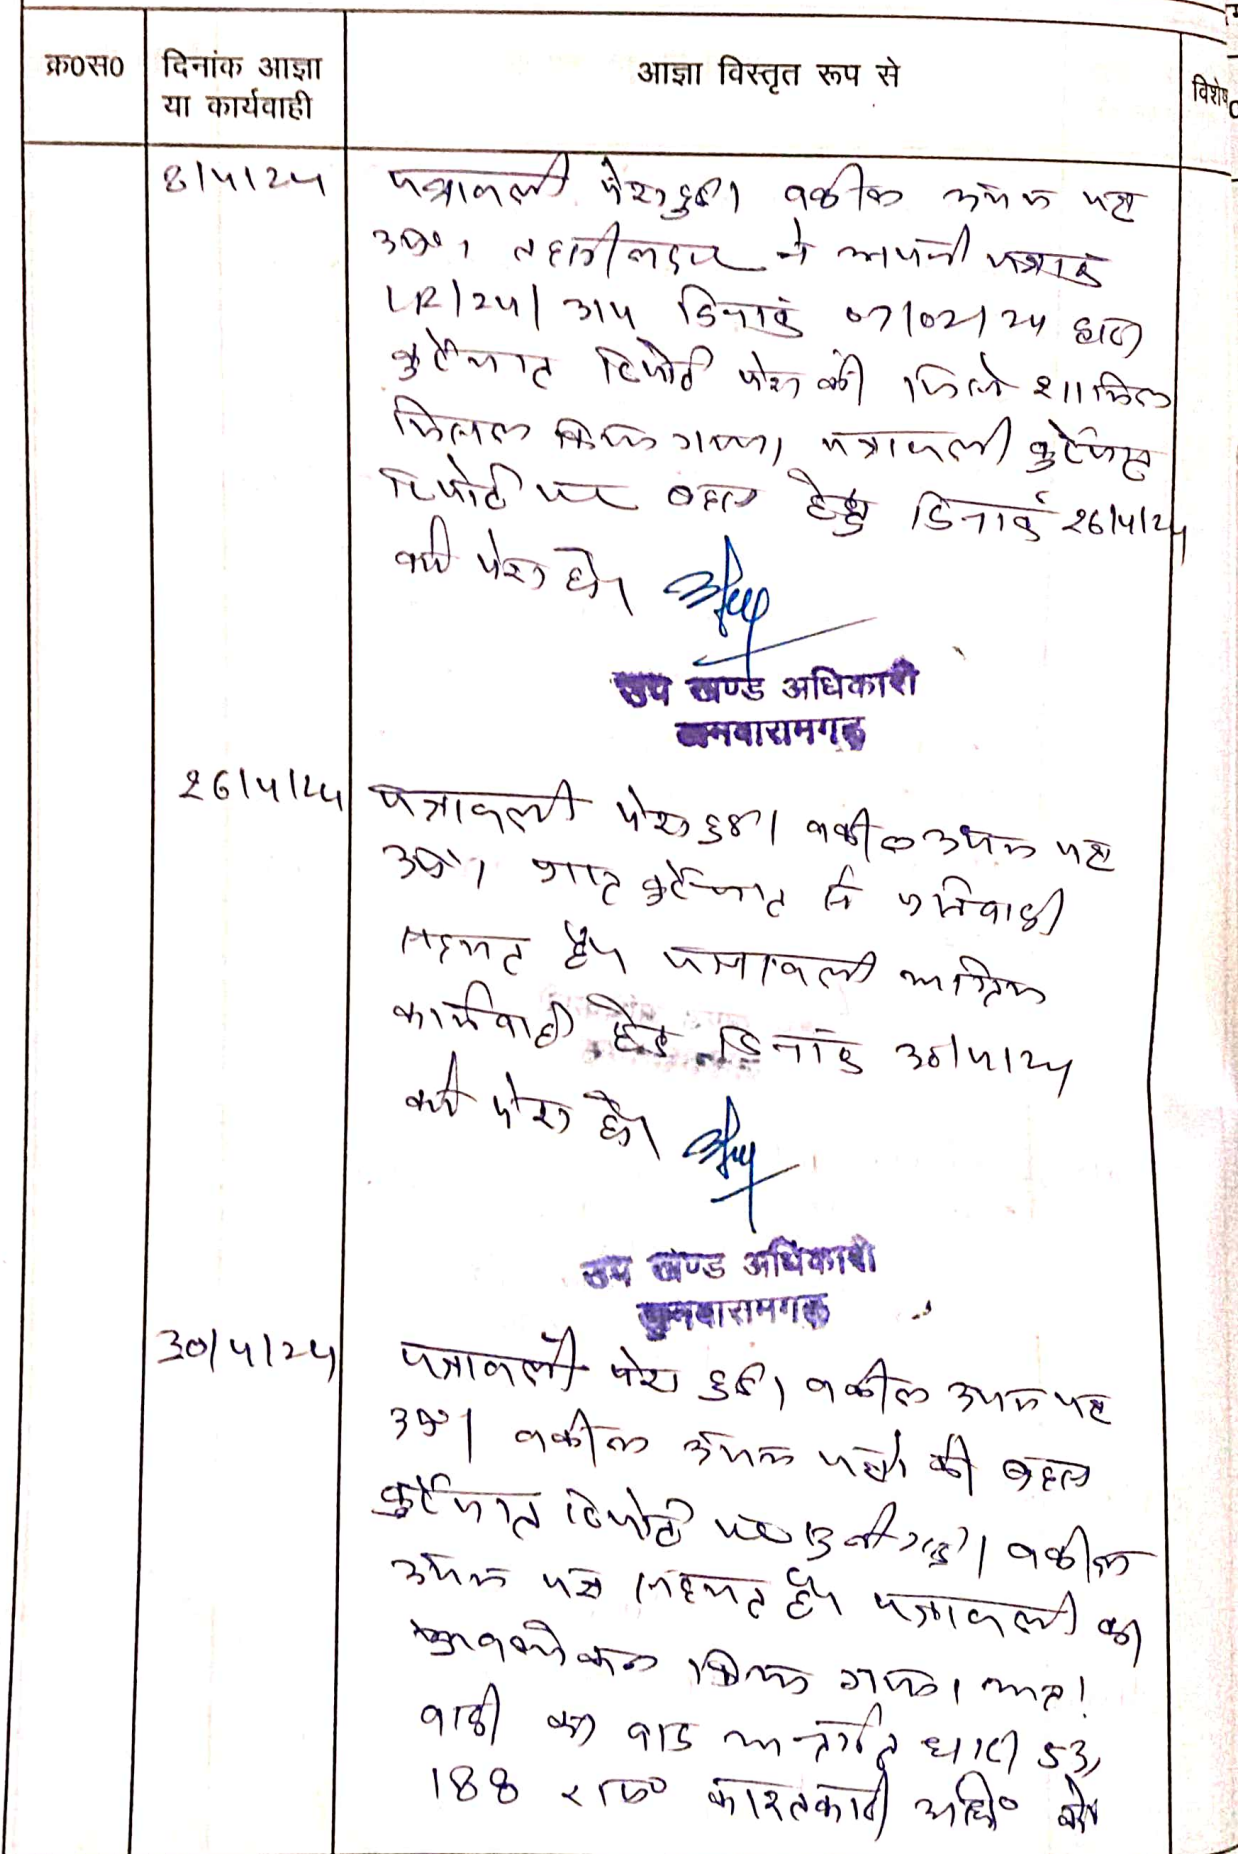 क्र०स०
दिनांक आज्ञा
या कार्यवाही
आज्ञा विस्तृत रूप से
विशेष
8/4/24
पत्रावली पेश हुई। वकील उभय पक्ष
उप०। तहसीलदार ने अपनी पत्रांक
LR/24/314 दिनांक 07/02/24 द्वारा
कुर्रेजात रिपोर्ट पेश की जिसे शामिल
मिसल किया गया। पत्रावली कुर्रेजात
रिपोर्ट पर बहस हेतु दिनांक 26/4/24
को पेश हो।
उप खण्ड अधिकारी
जमवारामगढ़
26/4/24
पत्रावली पेश हुई। वकील उभय पक्ष
उप०। कुर्रेजात से प्रतिवादी
सहमत है। पत्रावली अन्तिम
कार्यवाही हेतु दिनांक 30/4/24
को पेश हो।
उप खण्ड अधिकारी
जमवारामगढ़
30/4/24
पत्रावली पेश हुई। वकील उभय पक्ष
उप०। वकील उभय पक्षों की बहस
कुर्रेजात रिपोर्ट पर सुनी गई। वकील
उभय पक्ष सहमत है। पत्रावली का
अवलोकन किया गया। अतः
वादी का वाद अन्तर्गत धारा 53,
188 राज० काश्तकारी अधि० को